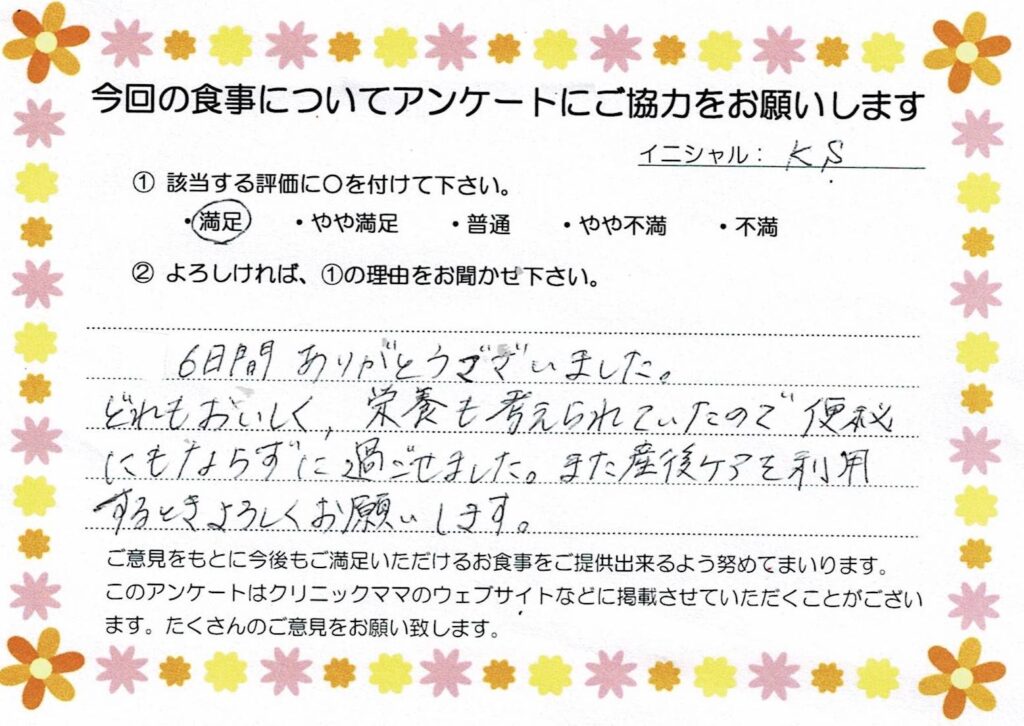 今回の食事についてアンケートにご協力をお願いします
イニシャル： KS
① 該当する評価に〇を付けて下さい。
・満足 ・やや満足 ・普通 ・やや不満 ・不満
② よろしければ、①の理由をお聞かせ下さい。
6日間 ありがとうございました。
どれもおいしく、栄養も考えられていたので便秘
にもならずに過ごせました。また産後ケアを利用
するときよろしくお願いします。
ご意見をもとに今後もご満足いただけるお食事をご提供出来るよう努めてまいります。
このアンケートはクリニックママのウェブサイトなどに掲載させていただくことがござい
ます。たくさんのご意見をお願い致します。